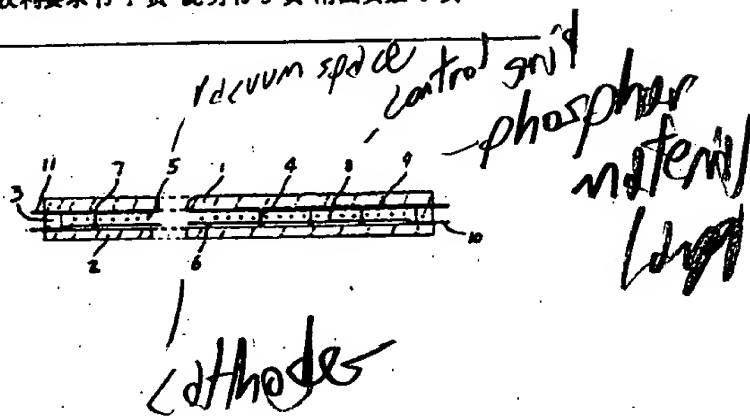 vacuum space
control grid
phosphor
material
11 7 5 1 4 8 9
3
10
2 6
cathodes